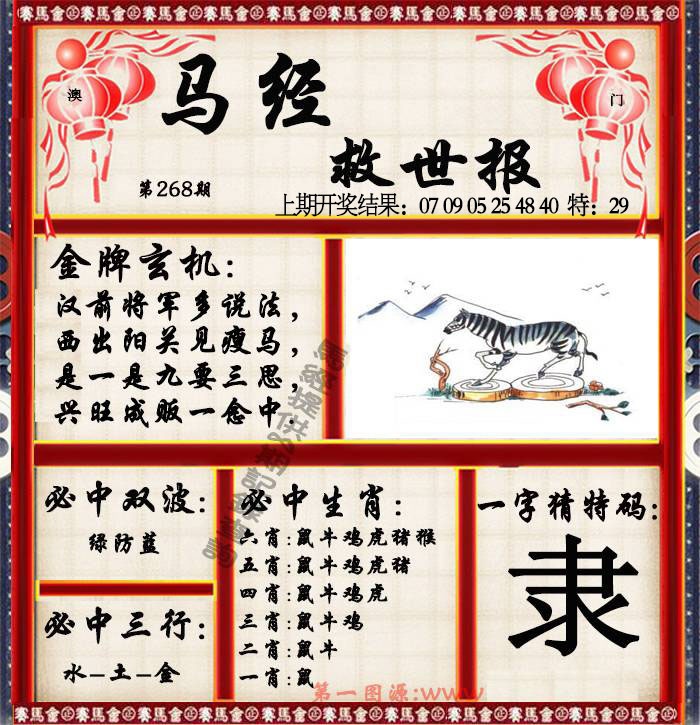 賽馬會正賽馬會正賽馬會正賽馬會正賽馬會正賽馬會
澳
门
马经
救世报
第268期
上期开奖结果：07 09 05 25 48 40 特：29
金牌玄机：
汉前将军多说法，
西出阳关见瘦马，
是一是九要三思，
兴旺成贩一念中.
必中双波：
绿防蓝
必中三行：
水–土–金
必中生肖：
六肖:鼠牛鸡虎猪猴
五肖:鼠牛鸡虎猪
四肖:鼠牛鸡虎
三肖:鼠牛鸡
二肖:鼠牛
一肖:鼠
一字猜特码：
隶
第一图源:www